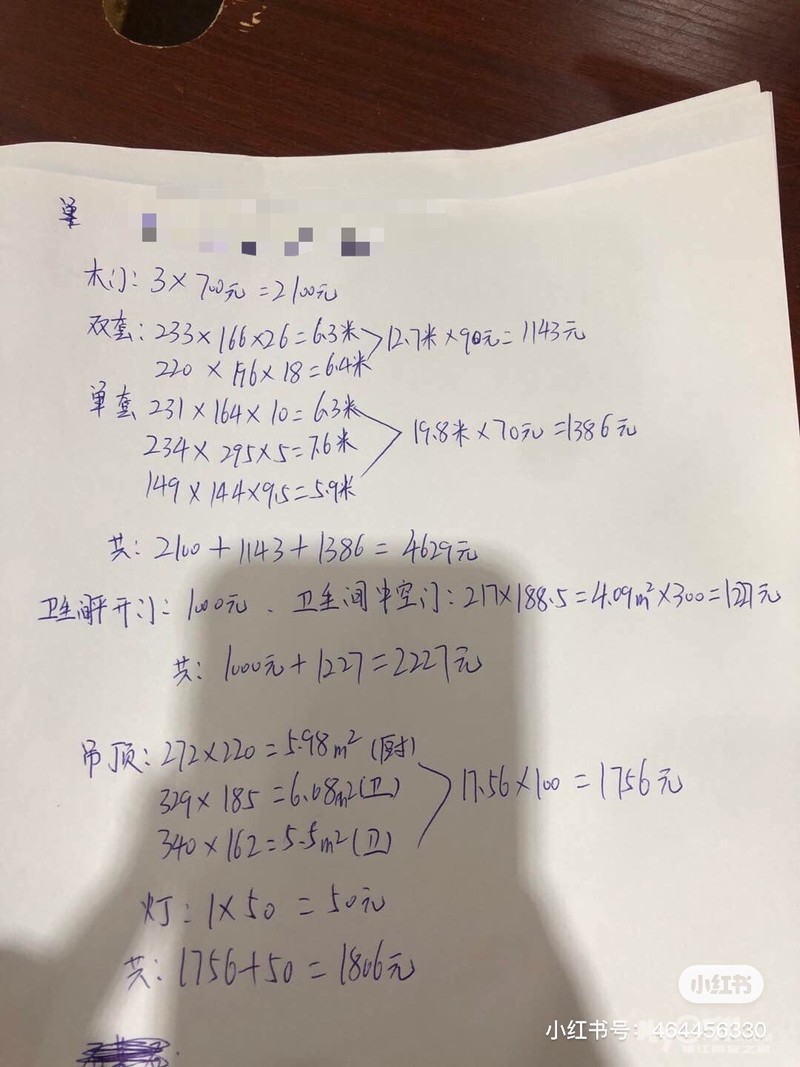 单
木门：3×700元=2100元
双套：233×166×26=6.3米
12.7米×90元=1143元
220×176×18=6.4米
单套 231×164×10=6.3米
234×295×5=7.6米
19.8米×70元=1386元
149×144×9.5=5.9米
共：2100+1143+1386=4629元
卫生间平开门：1000元、卫生间中空门：217×188.5=4.09m²×300=1227元
共：1000元+1227=2227元
吊顶：272×220=5.98m²(厨)
329×185=6.08m²(卫)
17.56×100=1756元
340×162=5.5m²(卫)
灯：1×50=50元
共：1756+50=1806元
小红书
小红书号：464456330